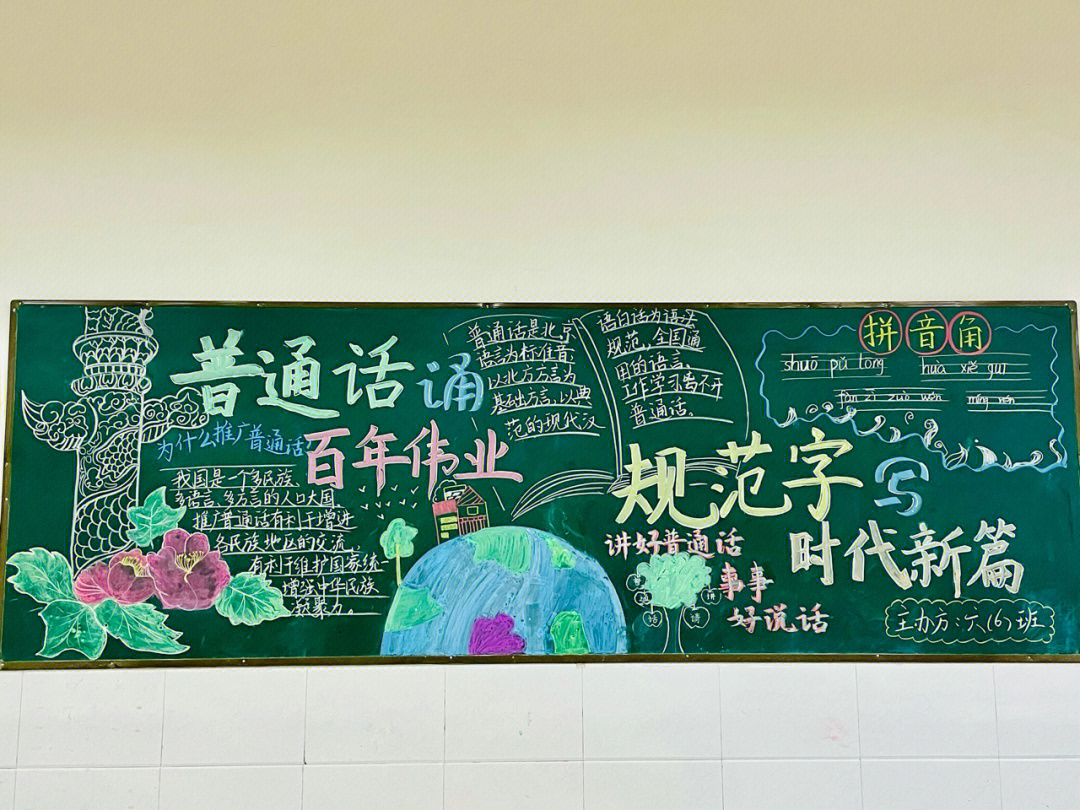 普通话诵
百年伟业
为什么推广普通话?
我国是一个多民族、
多语言、多方言的人口大国
推广普通话有利于增进
各民族地区的交流
有利于维护国家统一
增强中华民族
凝聚力。
普通话是北京
语言为标准音,
以北方方言为
基础方言,以典
范的现代汉
语白话为语法
规范,全国通
用的语言,
工作学习告不开
普通话。
规范字写
时代新篇
讲好普通话
事事
好说话
拼音角
shuō pǔ tōng
huà xiě guī
fàn zì zuò wén
míng rén
主办方:六(6)班